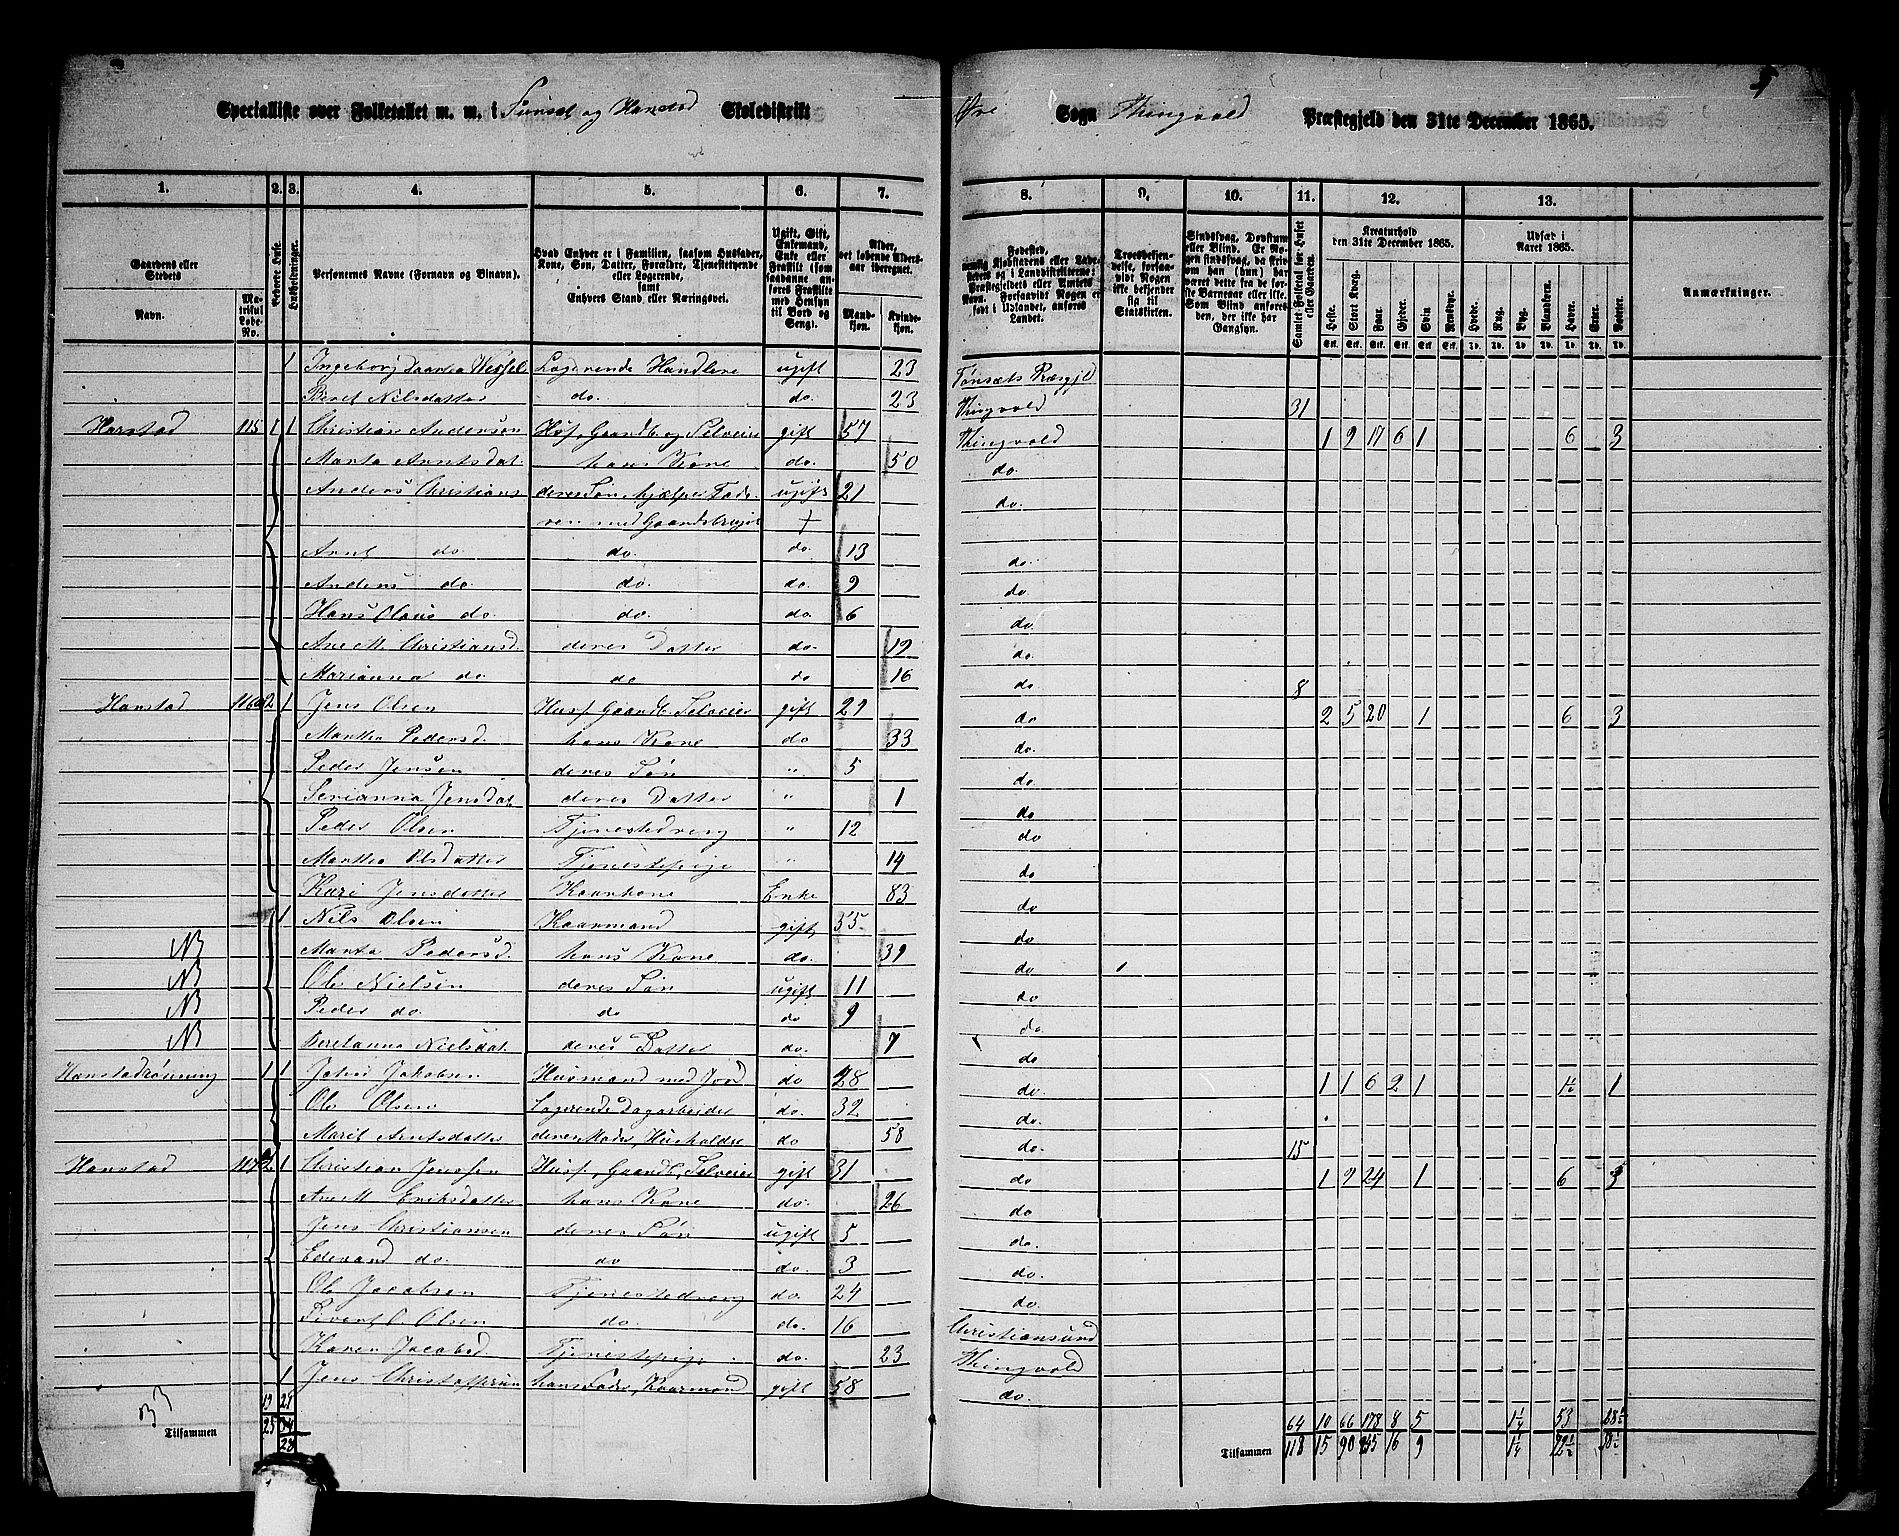 Specialliste over Folketallet m. m. i Sunset og Hanstad Skoledistrikt Øre Sogn Thingvold Præstegjeld den 31te December 1865.
1. 2. 3. 4. 5. 6. 7. 8. 9. 10. 11. 12. 13.
Gaardens eller Stedets Navn. Matrikul Løbe-No. Beboede Huse. Husholdninger. Personernes Navne (Fornavn og Binavn).
Hvad Enhver er i Familien, saasom Husfader, Kone, Søn, Datter, Forældre, Tjenestetyende eller Logerende, samt Enhvers Stand eller Næringsvei.
Ugift, Gift, Enkemand, Enke eller Fraskilt (som saadanne anføres Fraskilte med Hensyn til Bord og Seng).
Alder, det løbende Alders-aar iberegnet. Mandkjøn. Kvindekjøn.
Kreaturhold den 31te December 1865. Udsæd i Aaret 1865. Anmærkninger.
Heste. Stort Kvæg. Faar. Gjeder. Svin. Rensdyr. Hvede. Rug. Byg. Blandkorn. Havre. Erter. Poteter.
1 Ingeborg Daarthea Wessel Logerende Handlere ugift 23 Tønsæts Præsgjld
Beret Nilsdatter do. do. 23 Thingvold 31
Hanstad 115 1 1 Christian Andersen Husf. Gaardb. og Selveier gift 57 Thingvold 1 9 17 6 1 6 3
Marta Arntsdat. hans Kone do. 50 do.
Anders Christians deres Søn hjælper Fade- ugift 21 do.
ren med Gaardsbruget
Arnt do. do. do. 13 do.
Anders do. do. do. 9 do.
Hans Olaus do. do. do. 6 do.
Ane M. Christiansd. deres Datter do. 19 do.
Marianna do do do 16 do. 8
Hanstad 116 2 1 Jens Olsen Husf. Gaardb. Selveier gift 29 do 2 5 20 1 6 3
Martha Pedersd. hans Kone do 33 do.
Peder Jensen deres Søn " 5 do.
Serianna Jensdat. deres Datter " 1 do
Peder Olsen Tjenestedreng " 12 do
Martha Olsdatter Tjenestepige " 14 do
Kari Jensdatter Kaarkone Enke 83 do
1 Nils Olsen Kaarmand gift 55 do
NB Marta Pedersd. hans Kone do. 39 do
NB Ole Nielsen deres Søn ugift 11 do
NB Peder do. do do 9 do
NB Beretanna Nielsdat. deres Datter do. 7 do
Hanstadrønning 1 1 John Jakobsen Husmand med Jord do 28 do. 1 1 6 2 1 1½ 1
Ole Olsen Logerende Dagarbeider do. 32 do.
Marit Arntsdatter deres Moder, Husholdrs do 58 do. 15
Hanstad 117 1 Christian Jenssen Husf, Gaardb, Selveier gift 31 do 1 9 24 1 6 3
Ane M. Eriksdatter hans Kone do. 26 do
Jens Christiansen deres Søn ugift 5 do.
Edevard do. do do. 3 do.
Ole Jacobsen Tjenestedreng do. 24 do.
Sivert O. Olsen do. do. 16 Christiansund
Karen Jacobsd. Tjenestepige do. 23 Thingvold
1 Jens Christophersen hans Fader, Kaarmand gift 58 do.
64 10 66 178 8 5 1¼ 53 28½
Tilsammen 25 28 Tilsammen 118 15 90 16 9 1¼